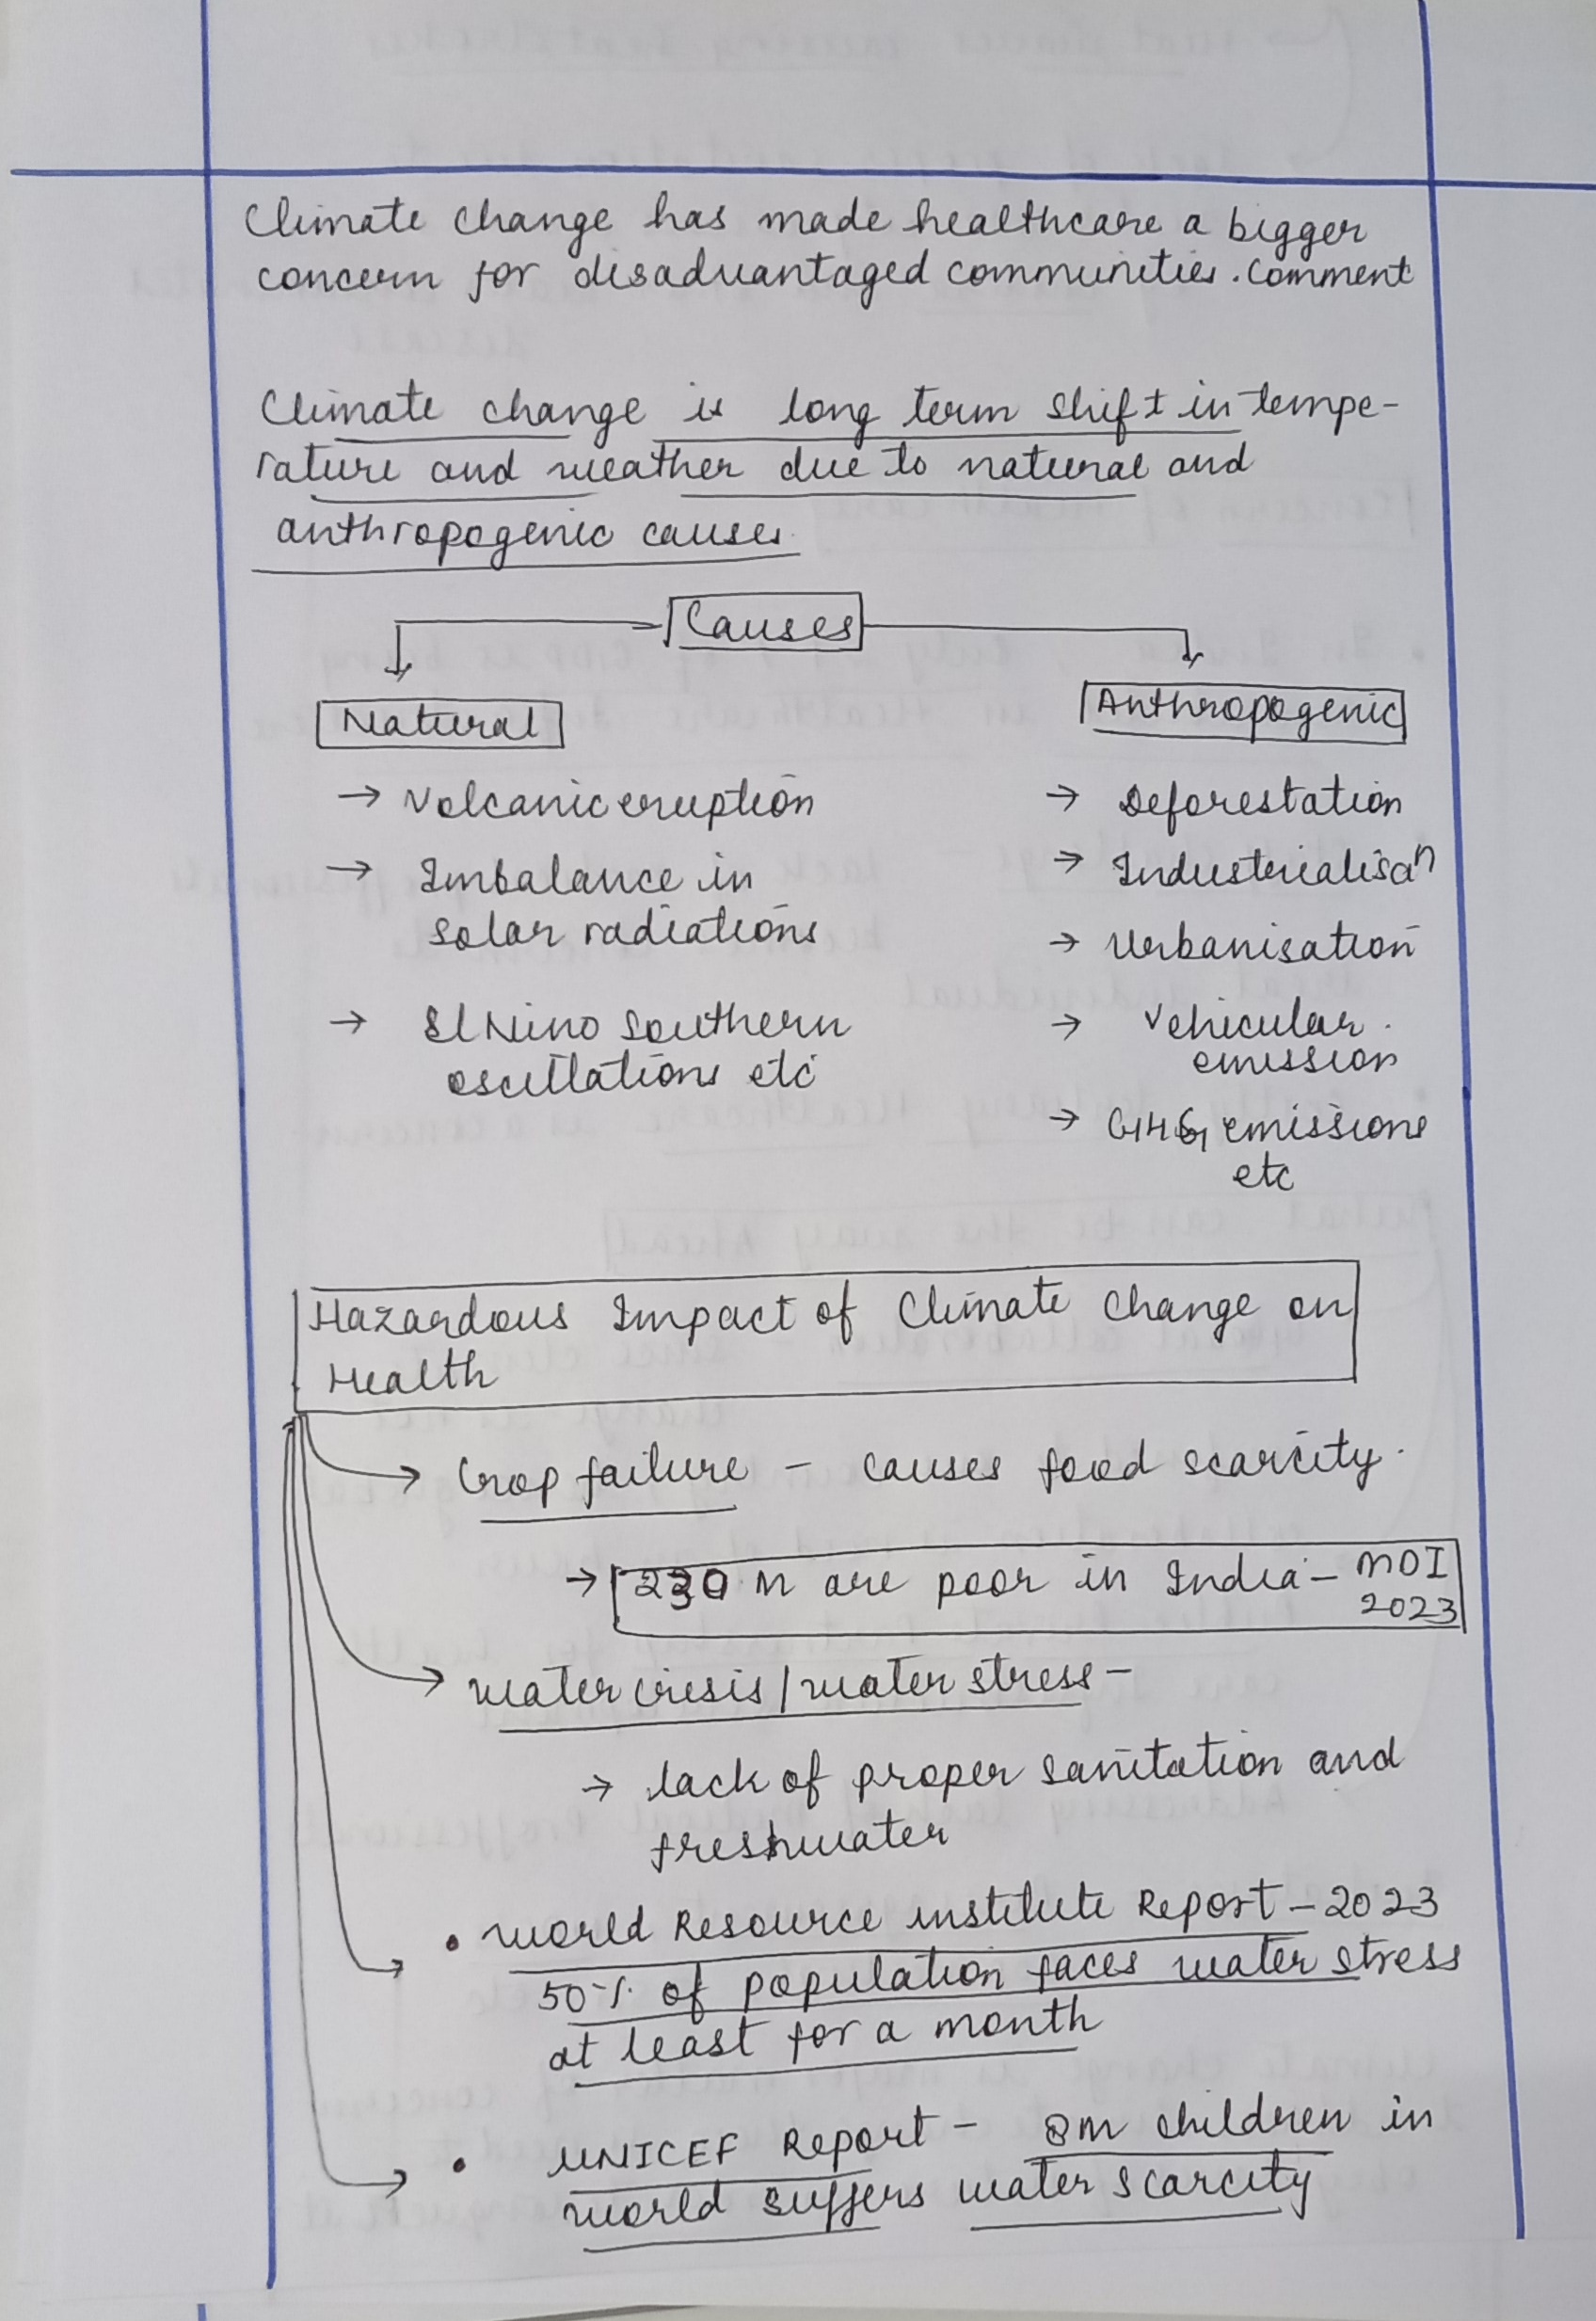 Climate change has made healthcare a bigger
concern for disadvantaged communities. Comment
Climate change is long term shift in tempe-
rature and weather due to natural and
anthropogenic causes.
Causes
Natural
Anthropogenic
→ Volcanic eruption
→ Imbalance in
solar radiations
→ El Nino Southern
oscillations etc
→ Deforestation
→ Industerialisaⁿ
→ Urbanisation
→ Vehicular
emission
→ GHG emissions
etc
Hazardous Impact of Climate Change on
Health
→ Crop failure - causes food scarcity.
→ 230 M are poor in India - MDI
2023
→ Water crisis / water stress -
→ lack of proper sanitation and
freshwater
• World Resource institute Report - 2023
50% of population faces water stress
at least for a month
• UNICEF Report - 8M children in
world suffers water scarcity